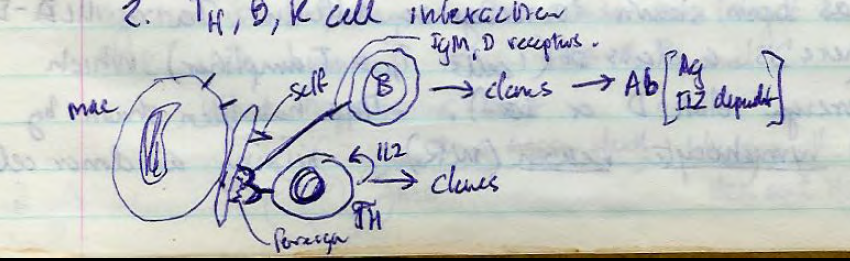 2. TH, B, K cell interaction
IgM, D receptors.
self
mac
B → clones → Ab [Ag
IL2 dependt]
IL2
→ clones
TH
Foreign